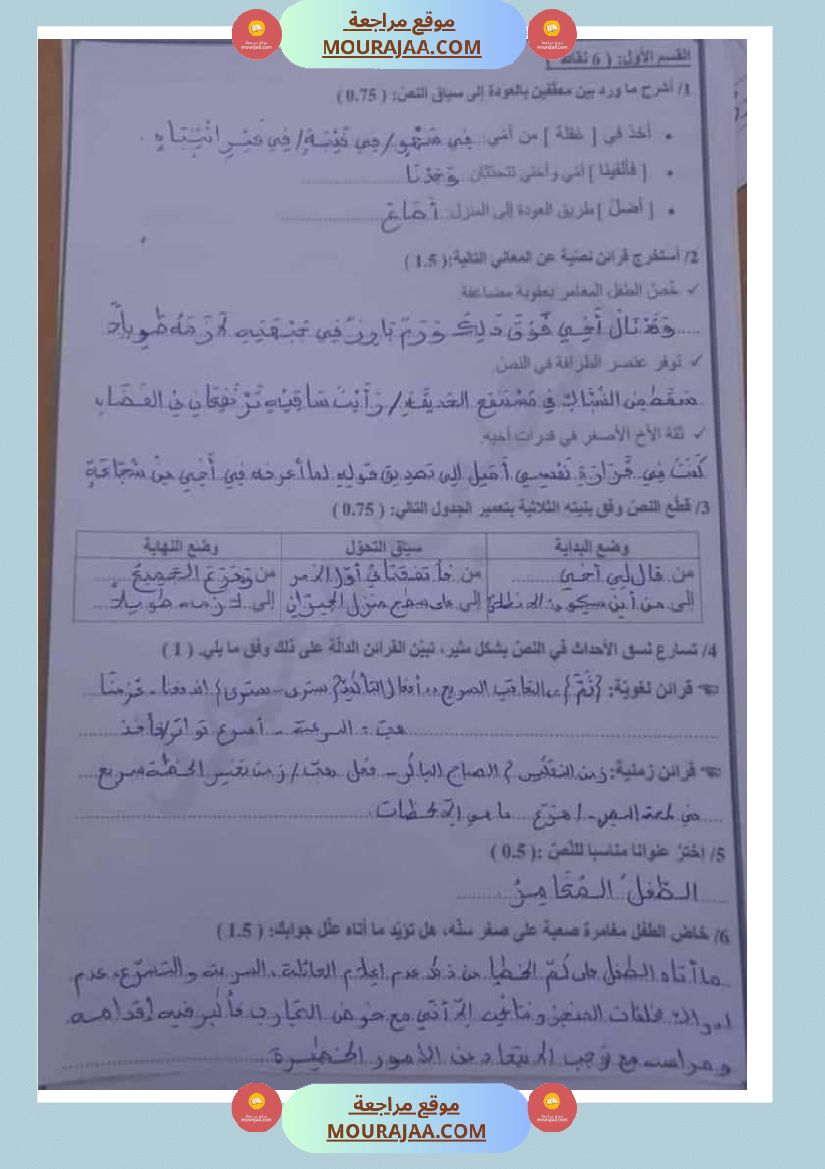 موقع مراجعة
MOURAJAA.COM
القسم الأول: ( 6 نقاط )
1/ أشرح ما ورد بين معقّفين بالعودة إلى سياق النصّ: ( 0.75 )
• أخذ في [ غفلة ] من أمّي: في سَهْوٍ / في غَيْبَةٍ / في غَيْرِ انْتِبَاهٍ .
• [ فألفينا ] أمّي وأختي تتحدّثان. وَجَدْنَا
• [ أضلّ ] طريق العودة إلى المنزل: أَضَاعَ
2/ أستخرج قرائن نصّية عن المعاني التالية:( 1.5 )
✓ خُصّ الطفل المغامر بعقوبة مضاعفة.
وَقَدْ نَالَ أَخِي فَوْقَ ذَلِكَ وَرَمٌ بَارِزٌ فِي جَبْهَتِهِ لَازَمَهُ طَوِيلاً.
✓ توفر عنصر الطرافة في النصّ.
سَقَطَ مِنَ الشُّبَّاكِ فِي مُسْتَنْقَعِ الحَدِيقَةِ / رَأَيْتُ سَاقَيْهِ تَرْتَفِعَانِ فِي الفَضَاءِ
✓ ثقة الأخ الأصغر في قدرات أخيه.
كُنْتُ فِي قَرَارَةِ نَفْسِي أَمِيلُ إلى تَصْدِيقِ قَوْلِهِ لما أعرفه فِي أَخِي مِنْ شَجَاعَةٍ
3/ قطّع النصّ وفق بنيته الثلاثية بتعمير الجدول التالي: ( 0.75 )
وضع البداية سياق التحوّل وضع النهاية
من قال لي أخي من فاتفقنا في أوّل الأمر من وَجَزِعَ الجميعُ
إلى من أين سيكون الانطلاق إلى على سطح منزل الجيران إلى لازمه طويلا
4/ تسارع نسق الأحداث في النصّ بشكل مثير، تبيّن القرائن الدالّة على ذلك وفق ما يلي. ( 1 )
قرائن لغويّة: {ثُمَّ} التعاقب السريع أفعال سترى - سترى اندفعنا -
هبّ: السرعة - أسرع
قرائن زمنية: زمن الصباح الباكر - فعل هبّ / زمن سريع
في لمحة البصر - ما هي إلّا لحظات
5/ إختَرْ عنوانا مناسبا للنّصّ :( 0.5 )
الطّفلُ المُغَامِرُ
6/ خاض الطفل مغامرة صعبة على صغر سنّه، هل تؤيّد ما أتاه علّل جوابك: ( 1.5 )
ما أتاه الطفل من عدم إعلام العائلة، السرية والتسرّع، عدم
إدراك مخلفات ونتائج إلّا أنّي مع خوض التجارب فأكبر فيه إقدامه
مع وجب الابتعاد عن الأمور الخطيرة
موقع مراجعة
MOURAJAA.COM